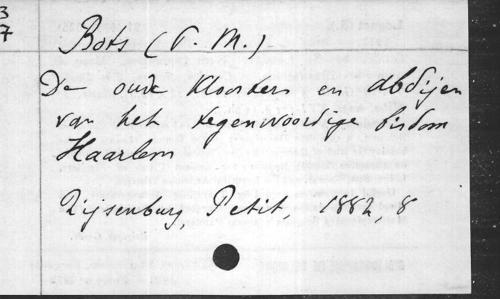 3
7
Bots (P. M.)
De oude kloosters en abdijen
van het tegenwoordige bisdom
Haarlem
Rijsenburg, Petit, 1882, 8